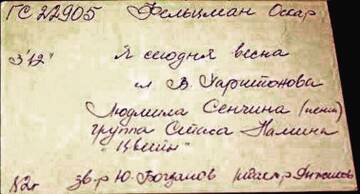 ГС 22905 Фельцман Оскар
3'42" Я сегодня весна
сл В. Харитонова
Людмила Сенчина (пение)
группа Стаса Намина
"Цветы"
зв-р Ю. Богданов